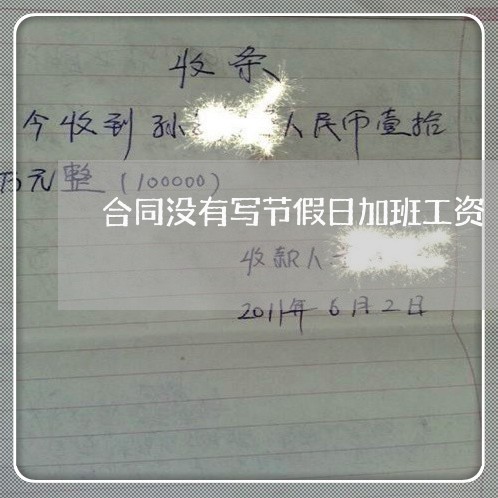 收条
今收到孙 人民币壹拾
万元整(100000)
合同没有写节假日加班工资
收款人
2011年6月2日